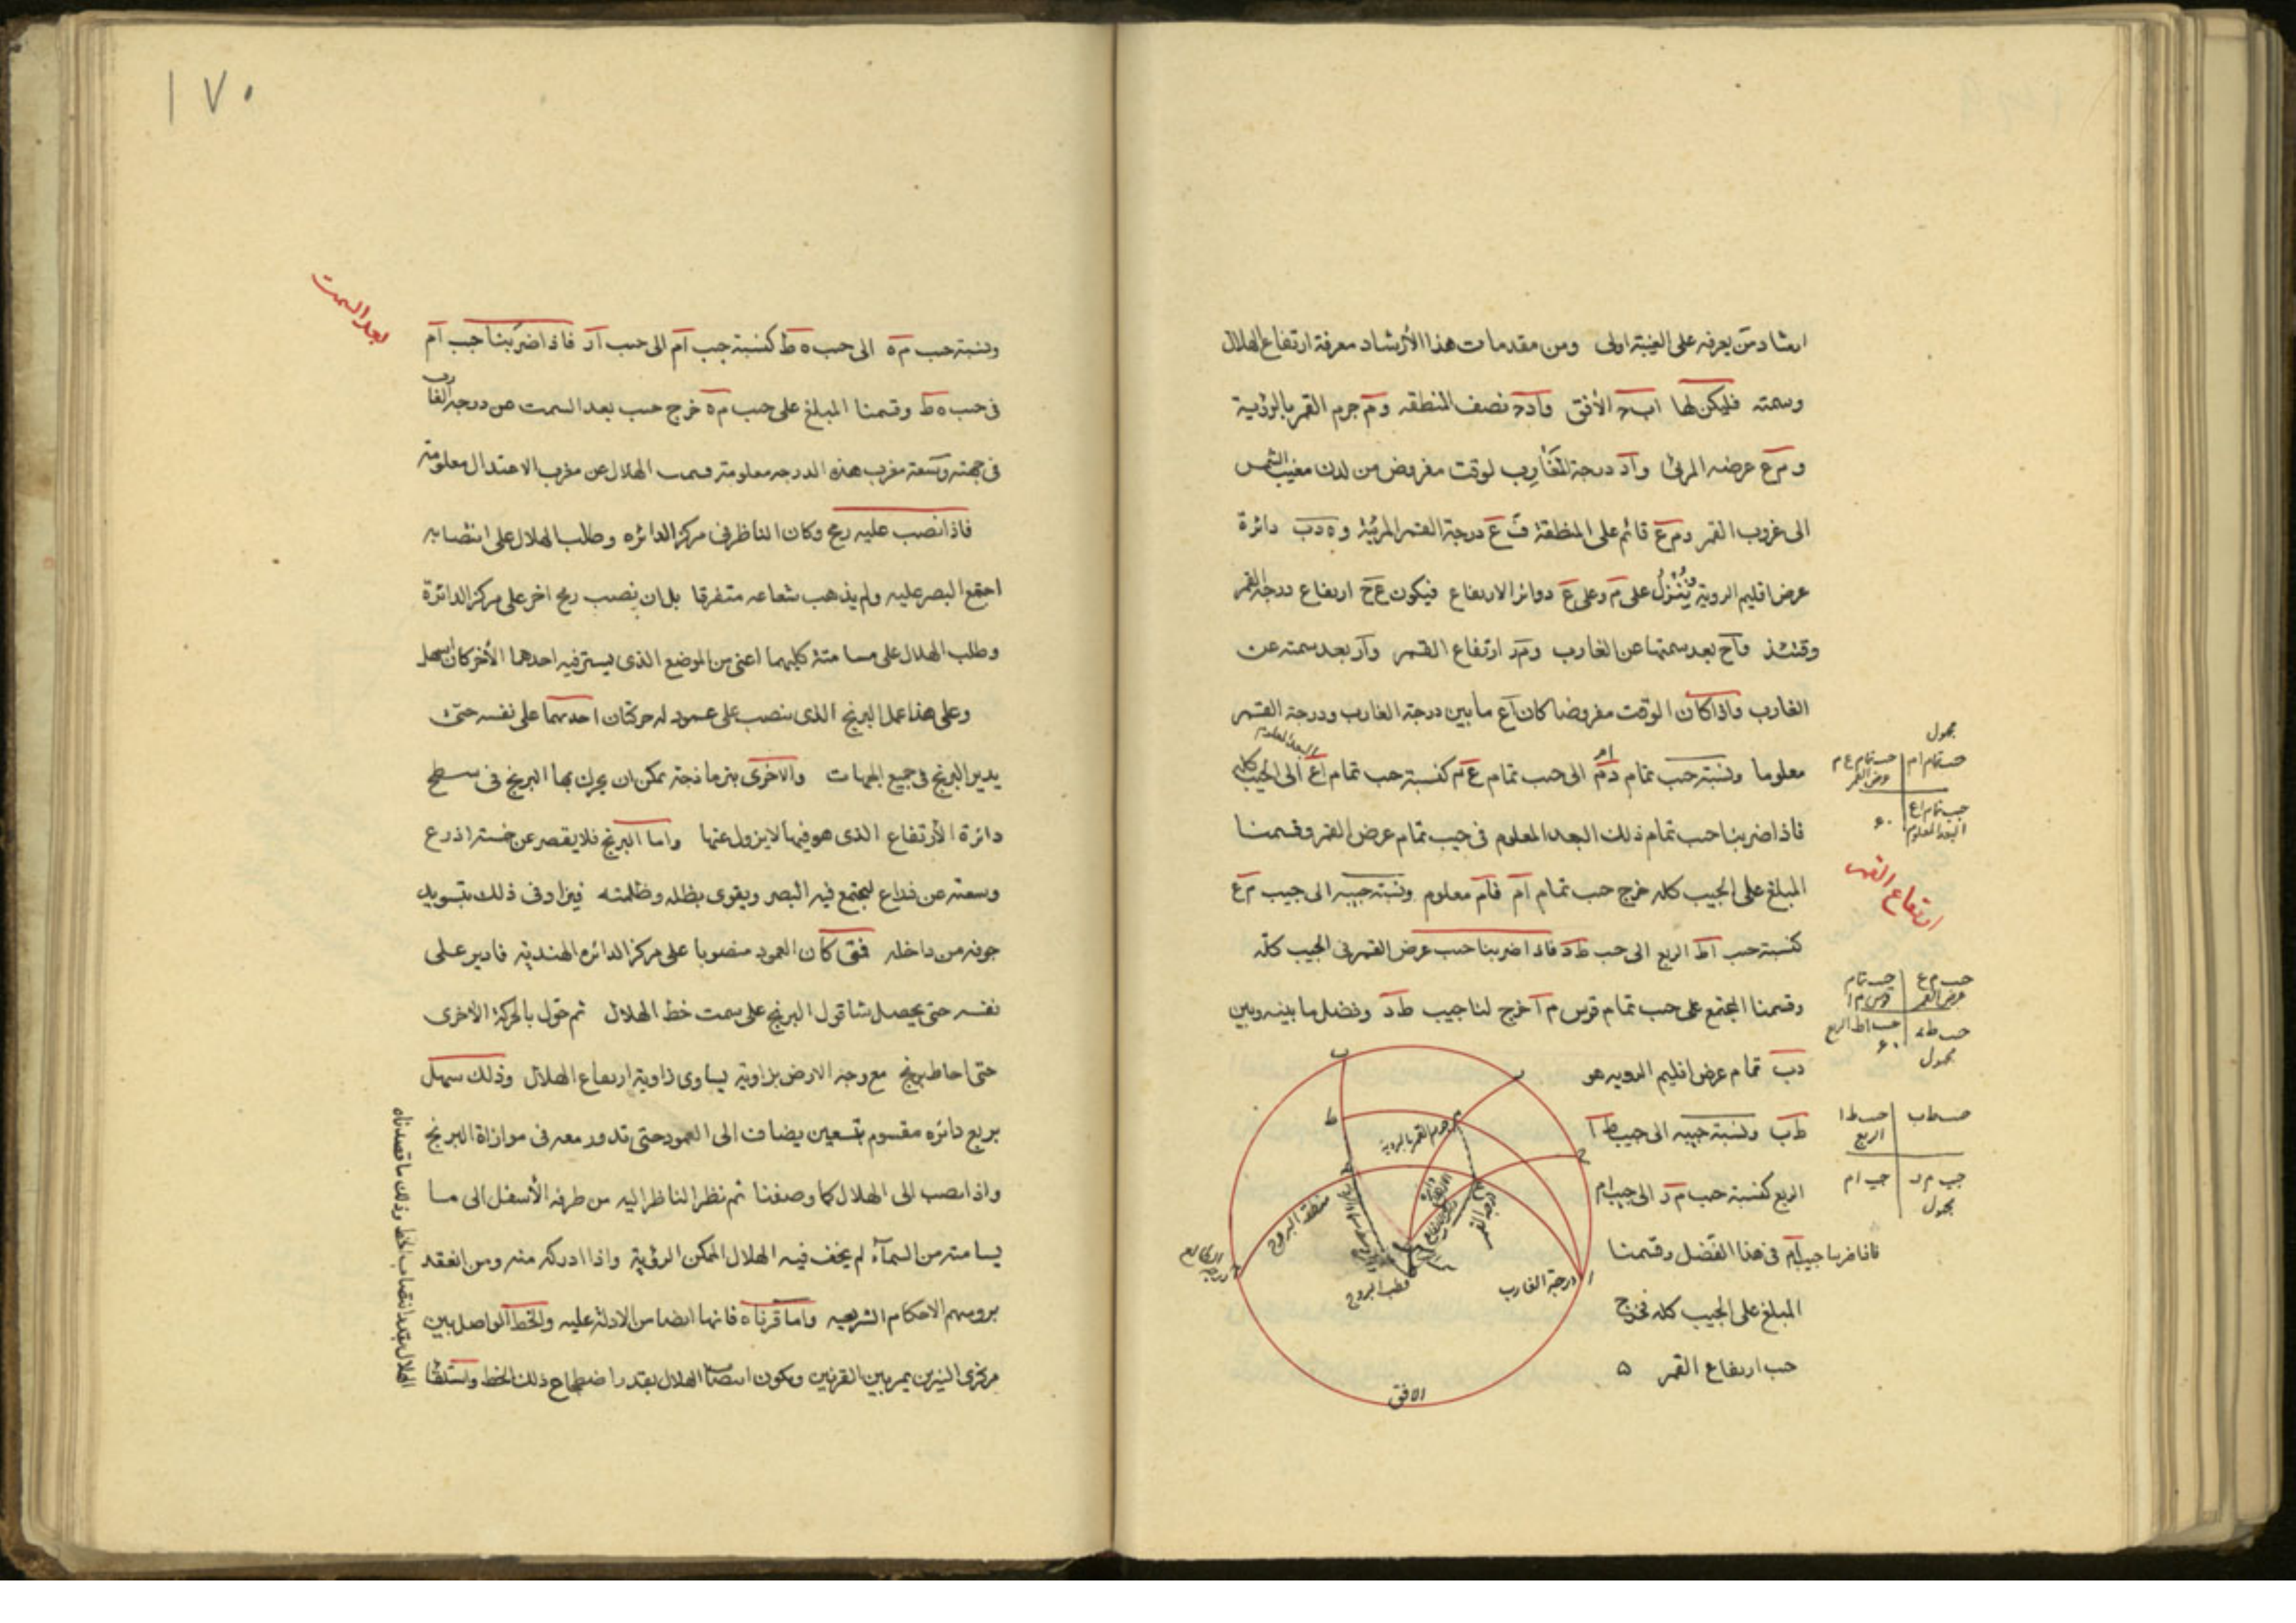 ارشاد من يعرفه على الغيبة اولى ومن مقدمات هذا الأرشاد معرفة ارتفاع الهلال
وسمته فليكن لها اب‍ج الأفق وآد‍ج نصف المنطقه وم جرم القمر بالرؤية
وم‍ع عرضه المرئى وآد درجة الغارب لوقت مفروض من لدن مغيب الشمس
الى غروب القمر وم‍ع قائم على المنطقة ف‍ع درجة القمر المرئية وه دب دائرة
عرض اقليم الروية وينزل على م وعلى ع دوائر الارتفاع فيكون ع‍ح ارتفاع درجة القمر
وقتئذ واح بعد سمتها عن الغارب وم‍ر ارتفاع القمر وار بعد سمته عن
الغارب واذا كان الوقت مفروضا كان اع ما بين درجة الغارب ودرجة القمر
معلوما ونسبة حب تمام دم الى حب تمام ع‍م كنسبة حب تمام اع الى الجيب كله
البعد المعلوم
فاذا ضربنا حب تمام ذلك البعد المعلوم فى جيب تمام عرض القمر وقسمنا
المبلغ على الجيب كله خرج حب تمام ام فام معلوم ونسبة جيبه الى جيب م‍ع
كنسبة حب اط الربع الى حب ط‍د فاذا ضربنا حب عرض القمر فى الجيب كله
وقسمنا المجتمع على حب تمام قوس م‍ا خرج لنا جيب ط‍د وفضل ما بينه وبين
دب تمام عرض اقليم الرويه هو
ط‍ب ونسبة جيبه الى جيب ط‍ا
الربع كنسبة حب م‍ر الى جيب ام
فاذا ضربنا جيب ام فى هذا الفضل وقسمنا
المبلغ على الجيب كله فخرج
حب ارتفاع القمر ه
مجهول
حب تمام ام حب تمام ع م
عرض القمر
حب تمام اع ٦٠
البعد المعلوم
ارتفاع القمر
حب م ع حب تمام
عرض القمر قوس م ا
حب ط د حب اط الربع
مجهول ٦٠
حب ط ب حب ط ا
الربع
جيب م ر جيب ام
مجهول
جرم القمر بالروية
منطقة البروج
درجة القمر
قطب البروج
درجة الغارب
درجة الطالع
الافق
١٧٠
بعد السمت
ونسبة حب م‍ه الى حب ه ط كنسبة جب ام الى حب ار فاذا ضربنا جب ام
فى حب ه ط وقسمنا المبلغ على حب م‍ه خرج حب بعد السمت عن درجة الغارب
فى جهته وسعة مغرب هذه الدرجه معلومة فسمت الهلال عن مغرب الاعتدال معلومة
فاذا نصب عليه رمح وكان الناظر فى مركز الدائره وطلب الهلال على انتصابه
اجتمع البصر عليه ولم يذهب شعاعه متفرقا بل ان نصب رمح اخر على مركز الدائرة
وطلب الهلال على مسامتة كليهما اعنى من الموضع الذى يستر فيه احدهما الأخر كان اسهل
وعلى هذا عمل البرنج الذى ينصب على عمود له حركتان احديهما على نفسه حتى
يدير البرنج فى جميع الجهات والاخرى بنرماذجة يمكن ان يحرك بها البرنج فى سطح
دائرة الأرتفاع الذى هو فيها لا يزول عنها واما البرنج فلا يقصر عن خمسة اذرع
وسعته عن ذراع ليجتمع فيه البصر ويقوى بظله وظلمته فيزاد فى ذلك بتسويد
جوفه من داخله فمتى كان العمود منصوبا على مركز الدائره الهنديه فادير على
نفسه حتى يحصل شاقول البرنج على سمت خط الهلال ثم حول بالحركة الاخرى
حتى احاط برنج مع وجه الارض بزاوية يساوى زاوية ارتفاع الهلال وذلك سهل
بربع دائره مقسوم بتسعين يضاف الى العمود حتى تدور معه فى موازاة البرنج
واذا نصب الى الهلال كما وصفنا ثم نظر الناظر اليه من طرفه الأسفل الى ما
يسامته من السمآء لم يخف فيه الهلال الممكن الرؤية واذا ادركه منه ومن انعقد
برؤيتهم الاحكام الشرعيه واما قرناه فانها ايضا من الادلة عليه والخط الواصل بين
مركزى النيرين يمر بين القرنين ويكون انتصاب الهلال بقدر اضطجاع ذلك الخط واستلقا
الهلال بقدر انتصاب الخط وذلك ما قصدناه